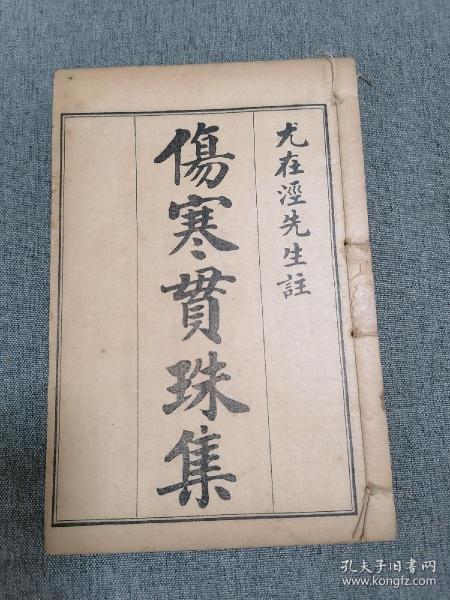 尤在涇先生註
傷寒貫珠集
孔夫子旧书网
www.kongfz.com